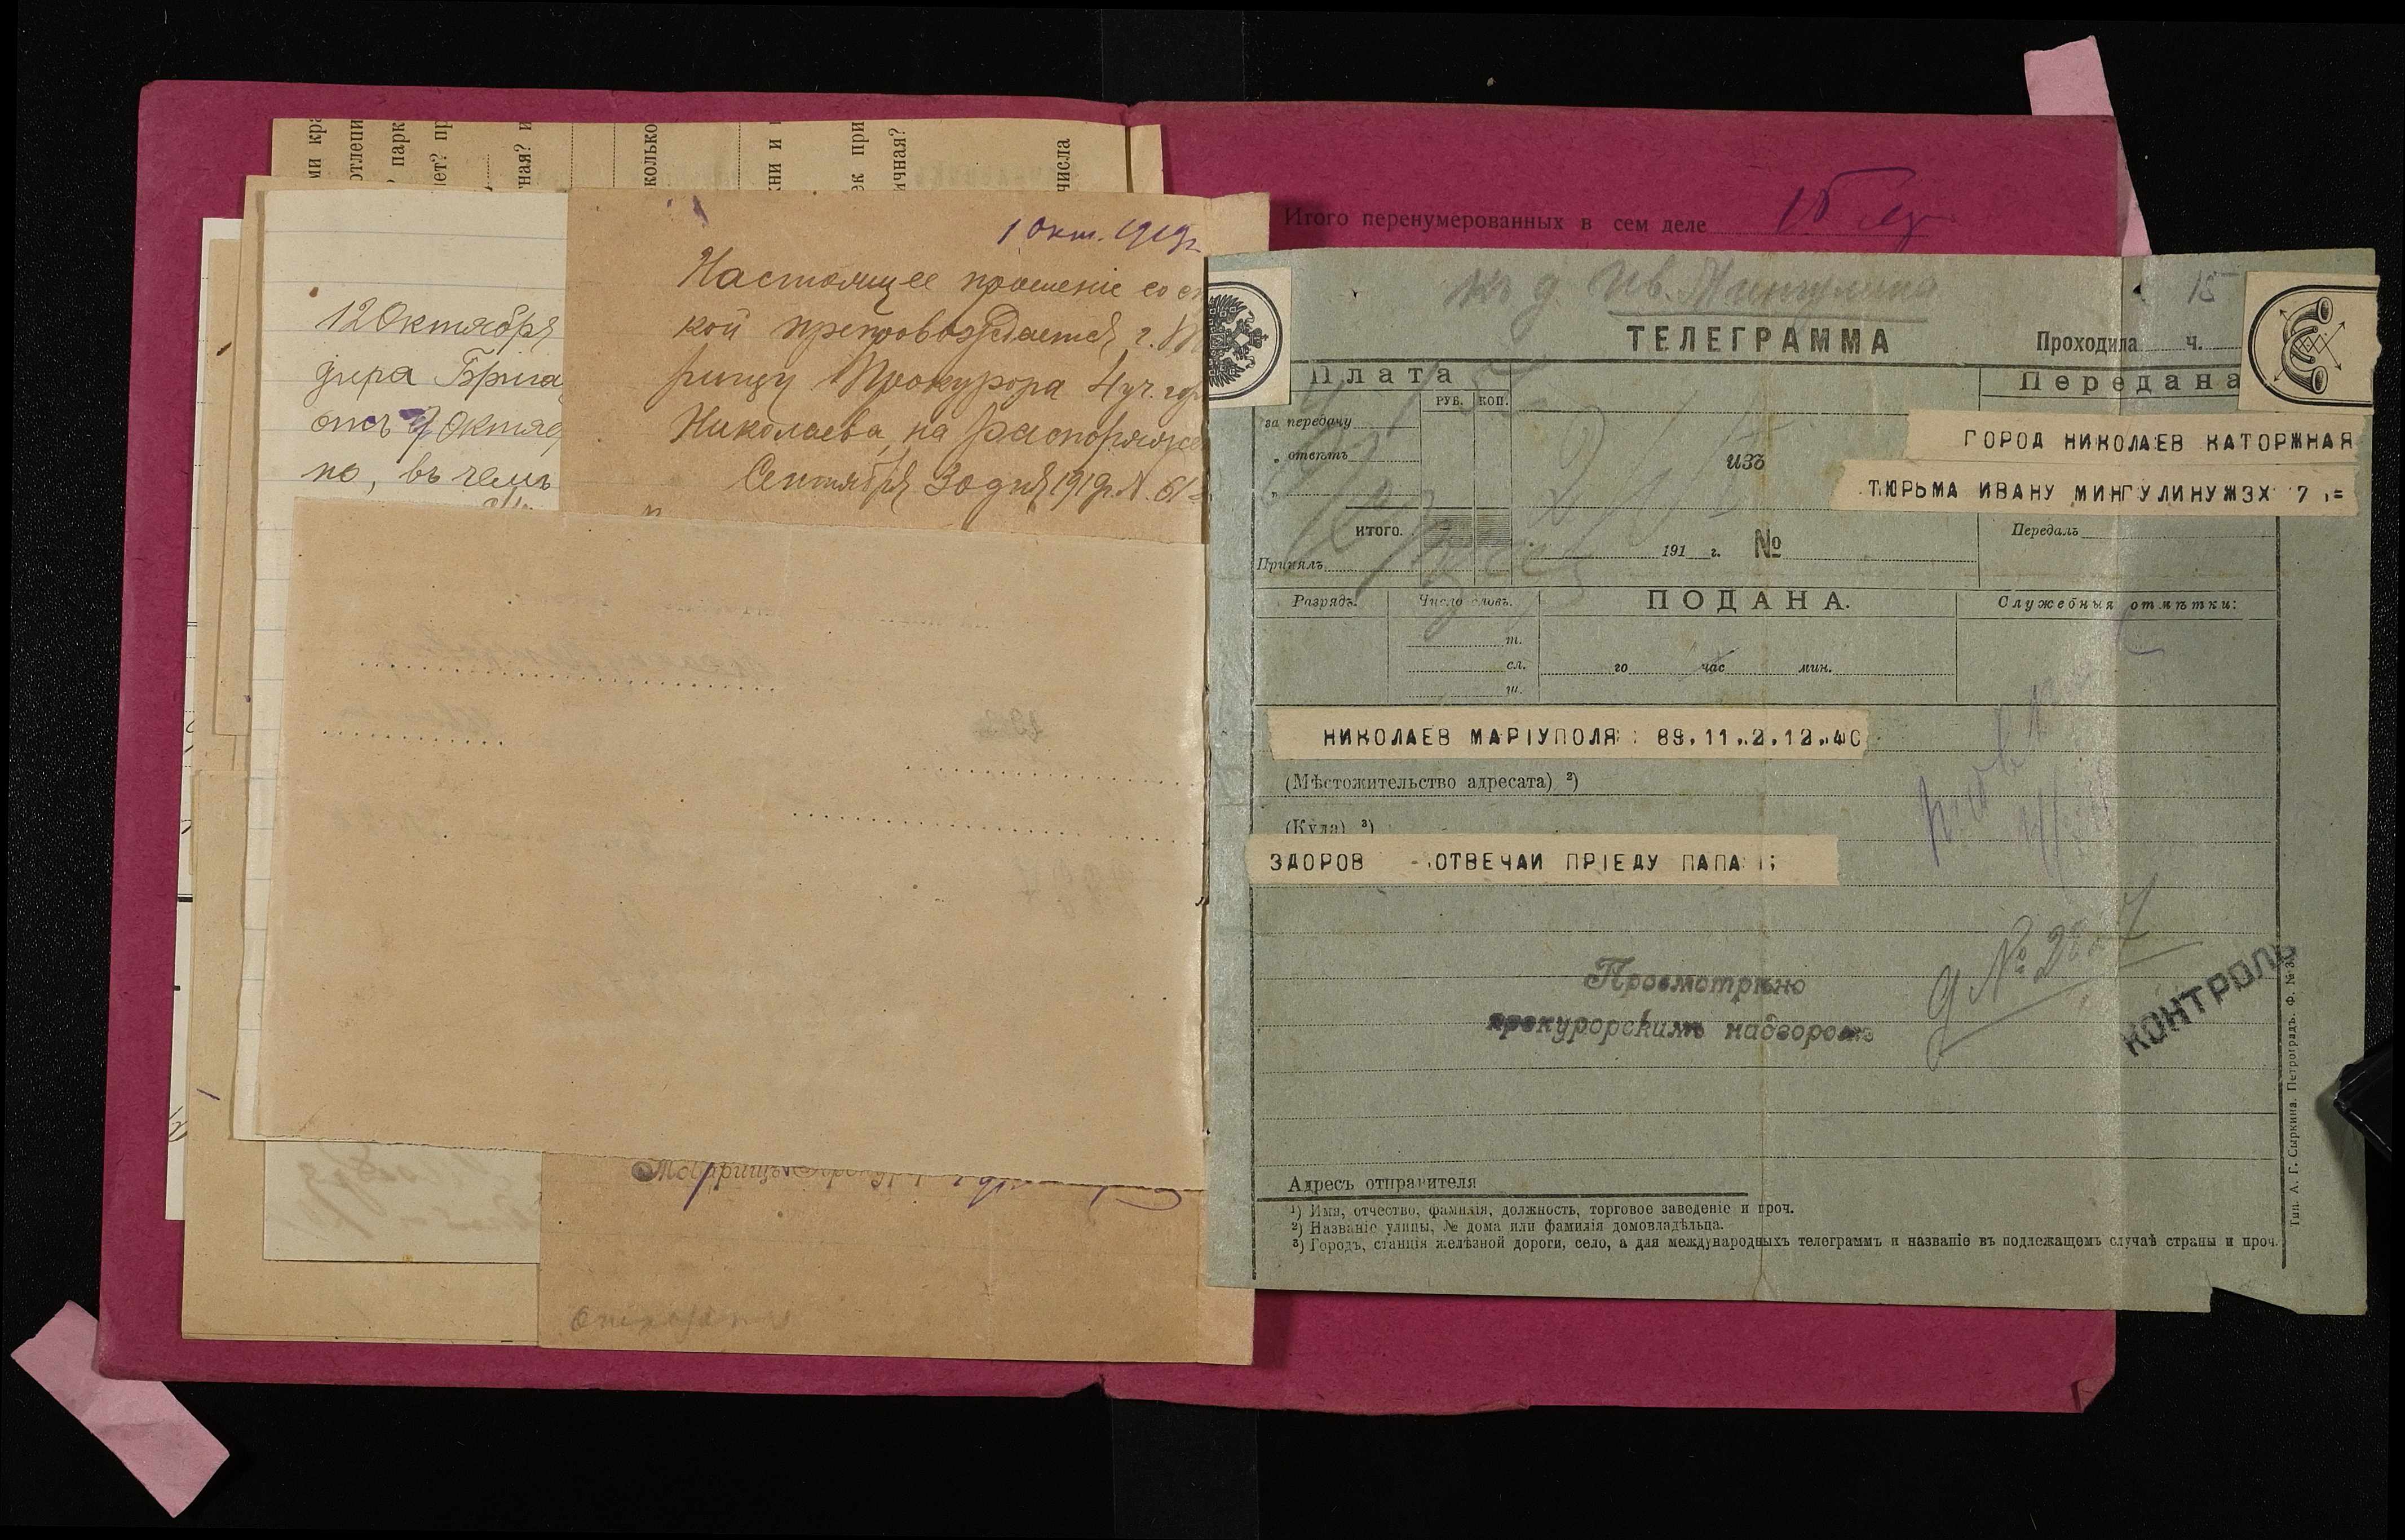 ми кра
отлепи
парк
ет? пр
ная? и
колько
ни и
ек при
ичная?
числа
12 Октября
дира Брига
отъ 9 Октяб
но, въ чемъ
1 Окт. 1919 г.
Настоящее прошеніе со сп
кой препровождается г. То
рищу Прокурора 4 уч. гор
Николаева, на распоряже
Сентября 30 дня 1919 г. №
Итого перенумерованных в сем деле 15
къ д. Ив. Мингулина
15
ТЕЛЕГРАММА
Проходила ч.
Плата
РУБ. КОП.
за передачу
„ отвѣтъ
„
итого.
Принялъ
изъ
191 г. №
Передана
ГОРОД НИКОЛАЕВ КАТОРЖНАЯ
ТЮРЬМА ИВАНУ МИНГУЛИНУЖЗХ 7 .=
Передалъ
Разрядъ.
Число словъ.
т.
сл.
ш.
ПОДАНА.
го час мин.
Служебныя отмѣтки:
НИКОЛАЕВ МАРІУПОЛЯ : 89.11..2.12..40
(Мѣстожительство адресата) ²)
(Куда) ³)
ЗДОРОВ -.ОТВЕЧАИ ПРІЕДУ ПАПА
Просмотрѣно
прокурорскимъ надзоромъ
КОНТРОЛЬ
Адресъ отправителя
¹) Имя, отчество, фамилія, должность, торговое заведеніе и проч.
²) Названіе улицы, № дома или фамилія домовладѣльца.
³) Городъ, станція желѣзной дороги, село, а для международныхъ телеграммъ и названіе въ подлежащемъ случаѣ страны и проч.
Тип. А. Г. Сыркина. Петроградъ. Ф. №